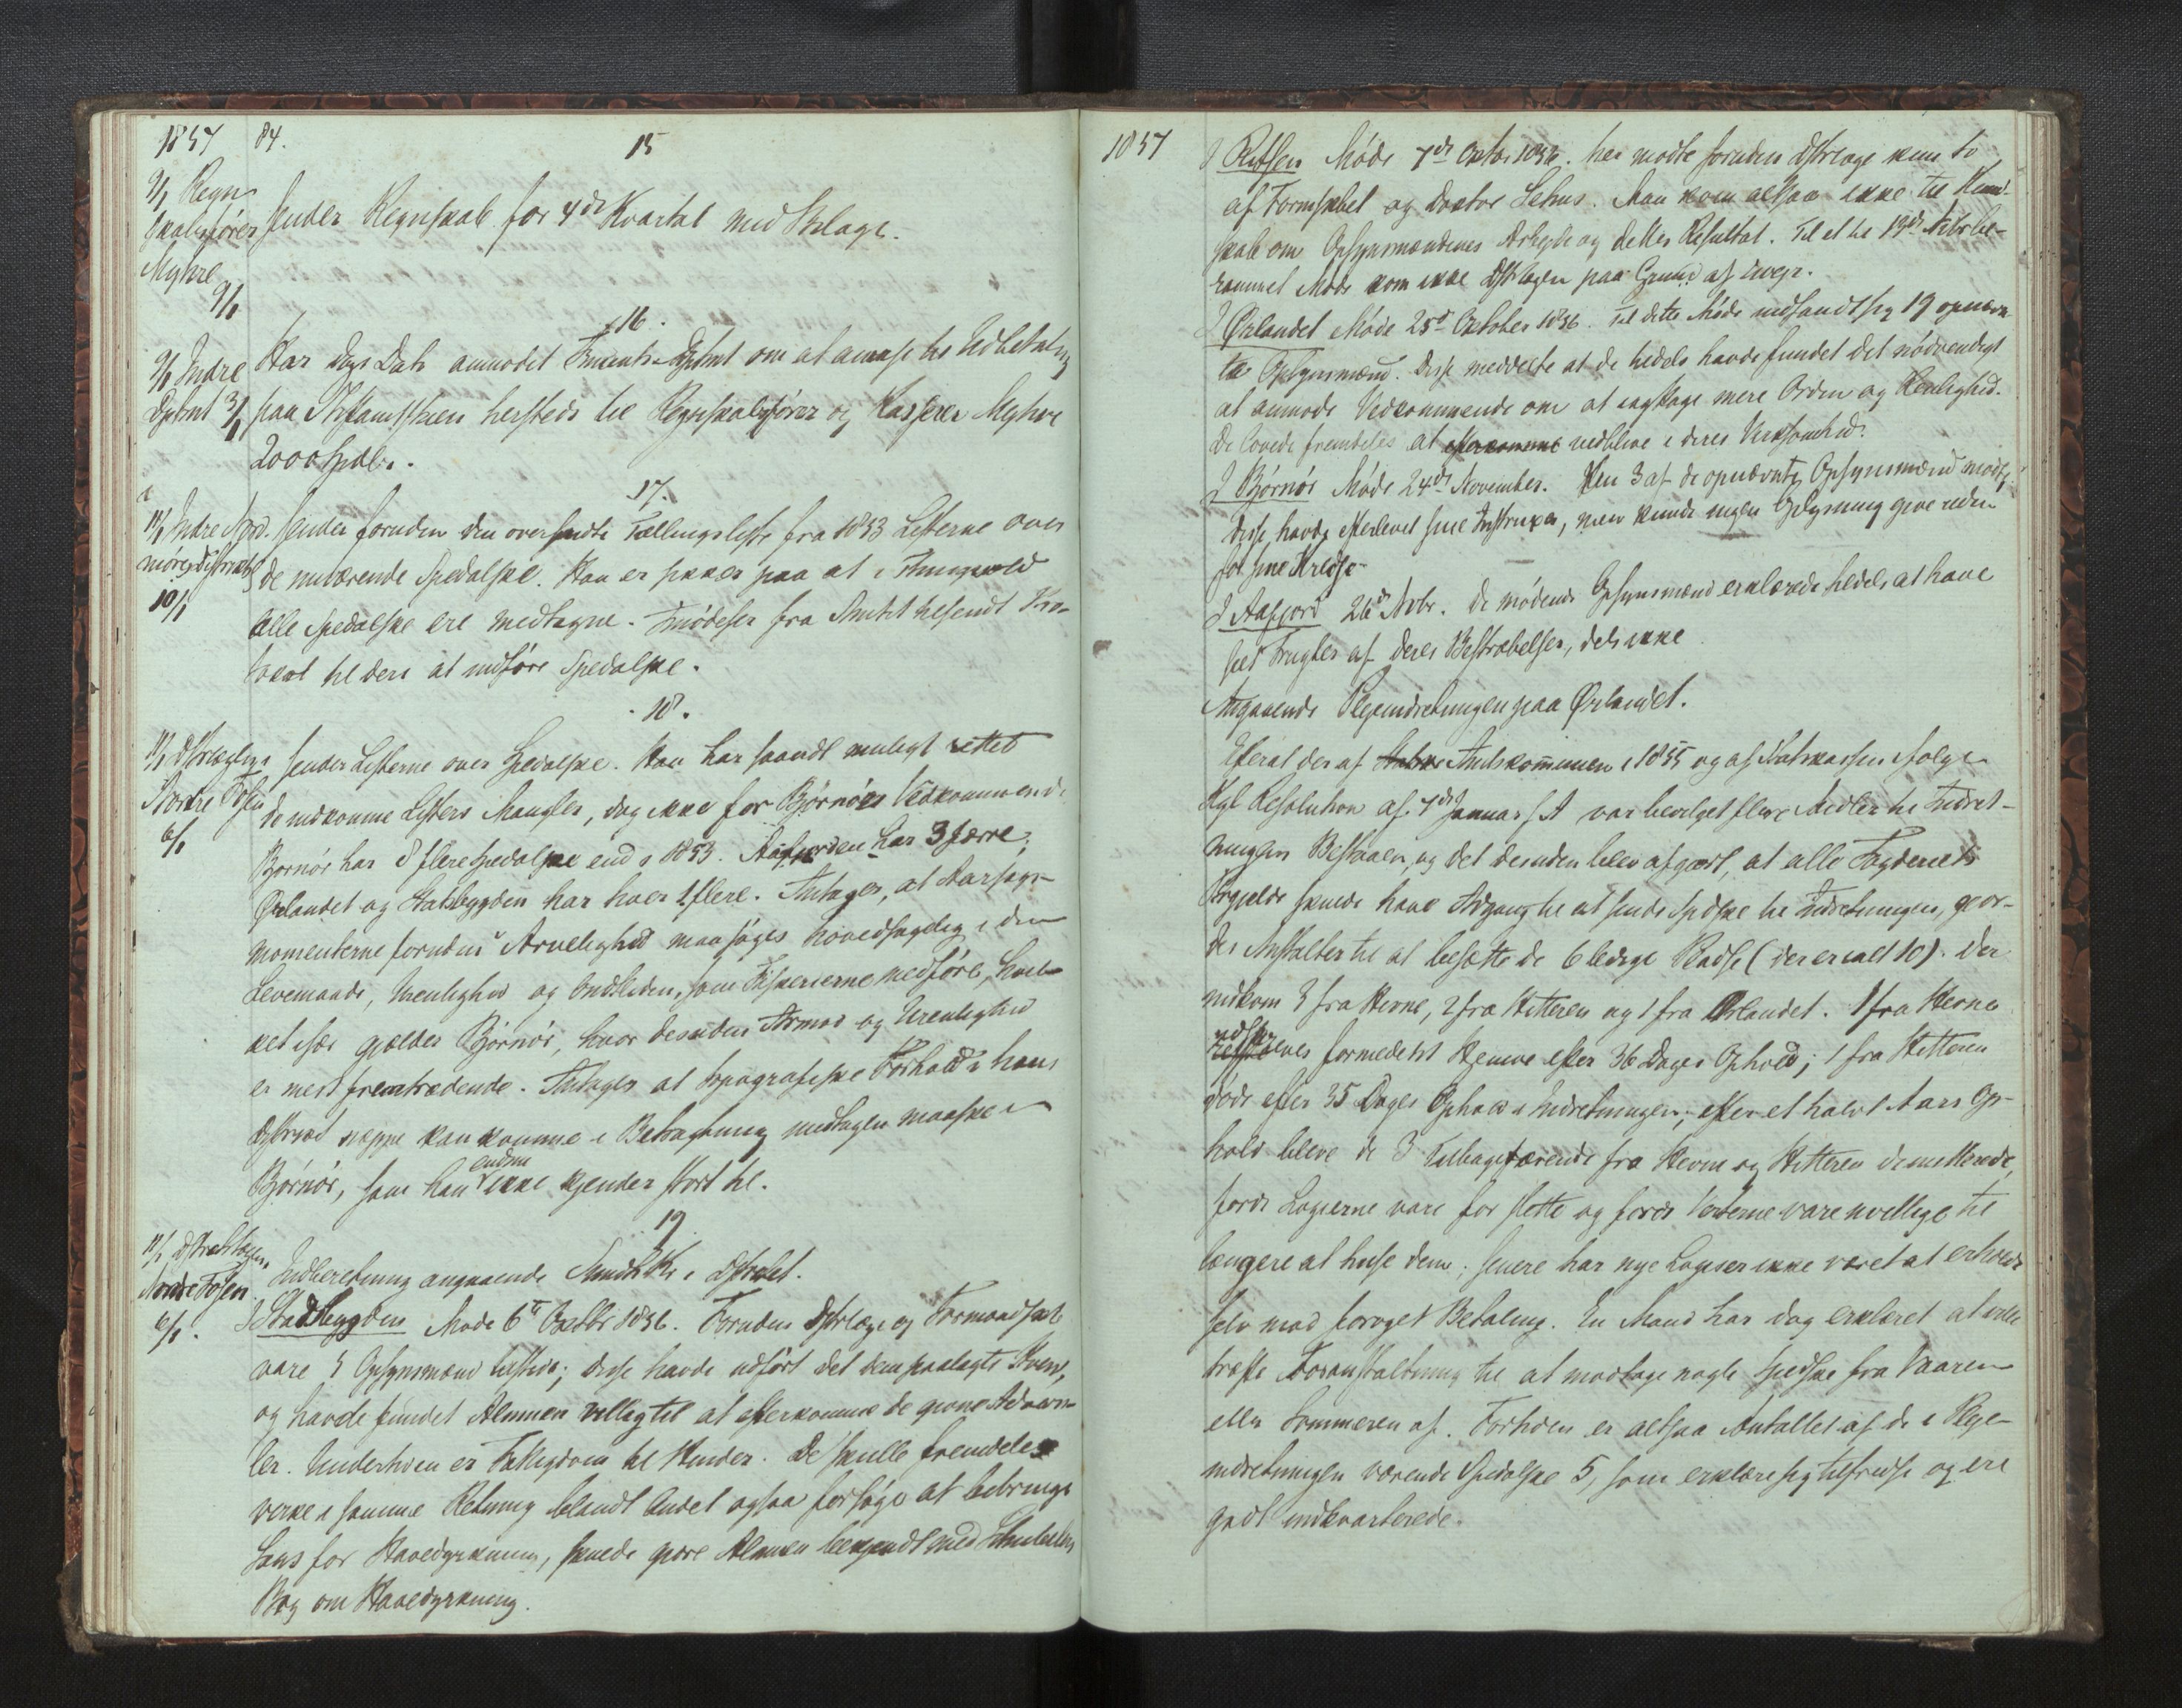 1857 84.
15
9/1 Regn
skabsfører sender Regnskab for 4de Kvartal med Bilage.
Myhre
9/1
16.
9/1 Indre Har dags Dato anmodet Finants-Dptmt om at anvise til Udbetaling
Dptmt 3/1 paa Stiftamtstuen hersteds til Regnskabsfører og Kasserer Myhre
2000 Spdlr.
17.
Indre Nord- sender foruden den oversendte Tællingsliste fra 1853 Listerne over
møres Distrikt de nuværende Spedalske. Han er sikker paa at
10/1 alle Spedalske ere medtagne. Imødeser fra Amtet tilsendt Pro-
tocol til deri at indføre Spedalske.
18.
Distrlægen i sender Listerne over Spedalske. Han har saavidt muligt rettet
Nordre Fosen de indkomne Listers Mangler, dog ikke for Bjørnørs Vedkommende
6/1
Bjørnør har 8 flere Spedalske end i 1853. Aafjorden har 3 færre;
Ørlandet og Stadsbygden har hver 1 flere. Antager, at Aarsags-
momenterne foruden Arvelighed maa søges hovedsagelig i den
Levemaade, Urenlighed og Ondskeden, som Fiskerierne medføre, hvil-
ket især gjælder Bjørnør, hvor desuden Armod og Urenlighed
er mest fremtrædende. Antager at topografiske Forhold i hans
Distrikt neppe kan komme i Betragtning undtagen maaske i
Bjørnør, som han endnu ikke kjender stort til.
19
Distriktslægen
Nordre Fosen Indberetning angaaende i Distriktet.
6/1. I Stadsbygden Møde 6te Octbr 1856. Foruden Distrlæge og Formandskab
vare 5 Opsynsmænd tilstede; disse havde udført det dem paalagte Hverv,
og havde fundet Almuen villig til at efterkomme de givne Adva-
ler. Underhaven er Fattigdom til Hinder. De skulle fremdeles
virke i samme Retning blandt Andet ogsaa forsøge at bibringe
Sans for Havedyrkning, skulde gjøre Almuen bekjendt med
Bog om Havedyrkning.
1857
I Rissen Møde 7de Octbr 1856. her mødte foruden Distrlæge kun to
af Formskbet og Doctor Lehus. Man kom altsaa ikke til Kund-
skab om Opsynsmændenes Arbeide og dettes Resultat. Til et til 19de Novbr be-
rammet Møde kom ikke Distrlægen paa Grund af Uveir.
I Ørlandet Møde 25de October 1856. Til dette Møde indfandt sig 19 opnævn-
te Opsynsmænd. Disse meddelte at de tildels havde fundet det nødvendigt
at anmode Vedkommende om at iagttage mere Orden og Renlighed.
De lovede fremdeles at efterkomme vedblive i deres Virksomhed.
I Bjørnør Møde 24de November. Kun 3 af de opnævnte Opsynsmænd mødte,
disse havde efterlevet sine Instruxer, men kunde ingen Oplysning give uden
for sine Kredse.
I Aafjord 26de Novbr. De mødende Opsynsmænd erklærede tildels at have
seet Frugter af deres Bestræbelser, dels ikke.
Angaaende Pleieindretningen paa Ørlandet.
Efterat der af Amtskommunen i 1855 og af Statskassen ifølge
Kgl Resolution af 7de Januar s. A var bevilget flere Midler til Indret-
ningens Bestaaen, og det desuden blev afgjort, at alle Fogderiets
Prgjelde skulde have Adgang til at sende Spedske til Indretningen, gjor-
des Anstalter til at besætte de 6 ledige Pladse (der er ialt 10). Der
indkom 3 fra Hevne, 2 fra Hitteren og 1 fra Ørlandet. 1 fra Hevne
udskreves formedelst Hjemve efter 36 Dages Ophold; 1 fra Hitteren
døde efter 35 Dages Ophold i Indretningen; efter et halvt Aars Op-
hold bleve de 3 Tilbageværende fra Hevne og Hitteren dimitterede,
fordi Logierne vare for slette og fordi Verterne vare uvillige til
længere at huse dem; senere har nye Logier ikke været at erholde
selv mod forøget Betaling. En Mand har dog erklæret at ville
træffe Foranstaltning til at modtage nogle Spedske fra Vaaren
eller Sommeren af. Forhen er altsaa Antallet af de i Pleie-
indretningen værende Spedalske 5, som erklære sig tilfredse og ere
godt indkvarterede.